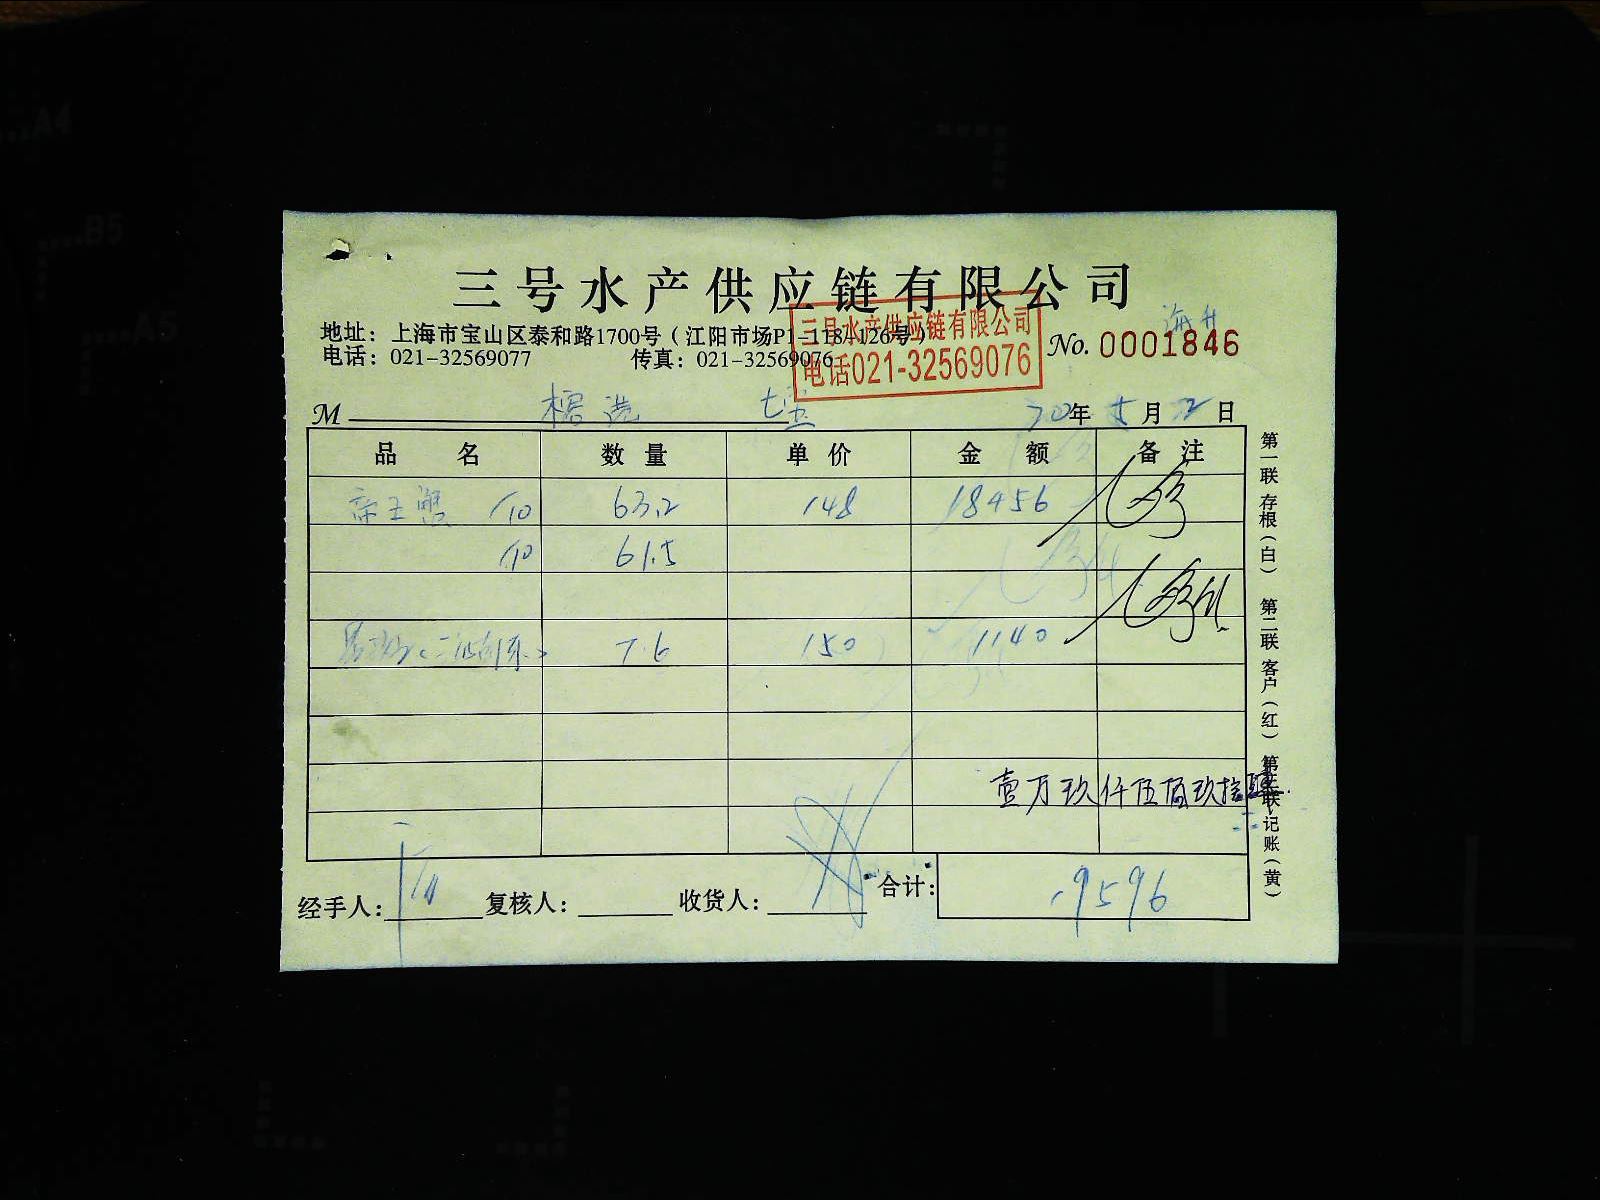 三号水产供应链有限公司
地址：上海市宝山区泰和路1700号（江阳市场P1-118/126号）
电话：021-32569077 传真：021-32569076
三号水产供应链有限公司
电话021-32569076
No. 0001846
M
20年 5月 2日
品 名 数 量 单 价 金 额 备 注
帝王蟹 /10 63.2 148 18456
/10 61.5
7.6 150 1140
壹万玖仟伍佰玖拾
经手人： 复核人： 收货人： 合计： 19596
第一联 存根（白） 第二联 客户（红） 第三联 记账（黄）
A4
B5
A5